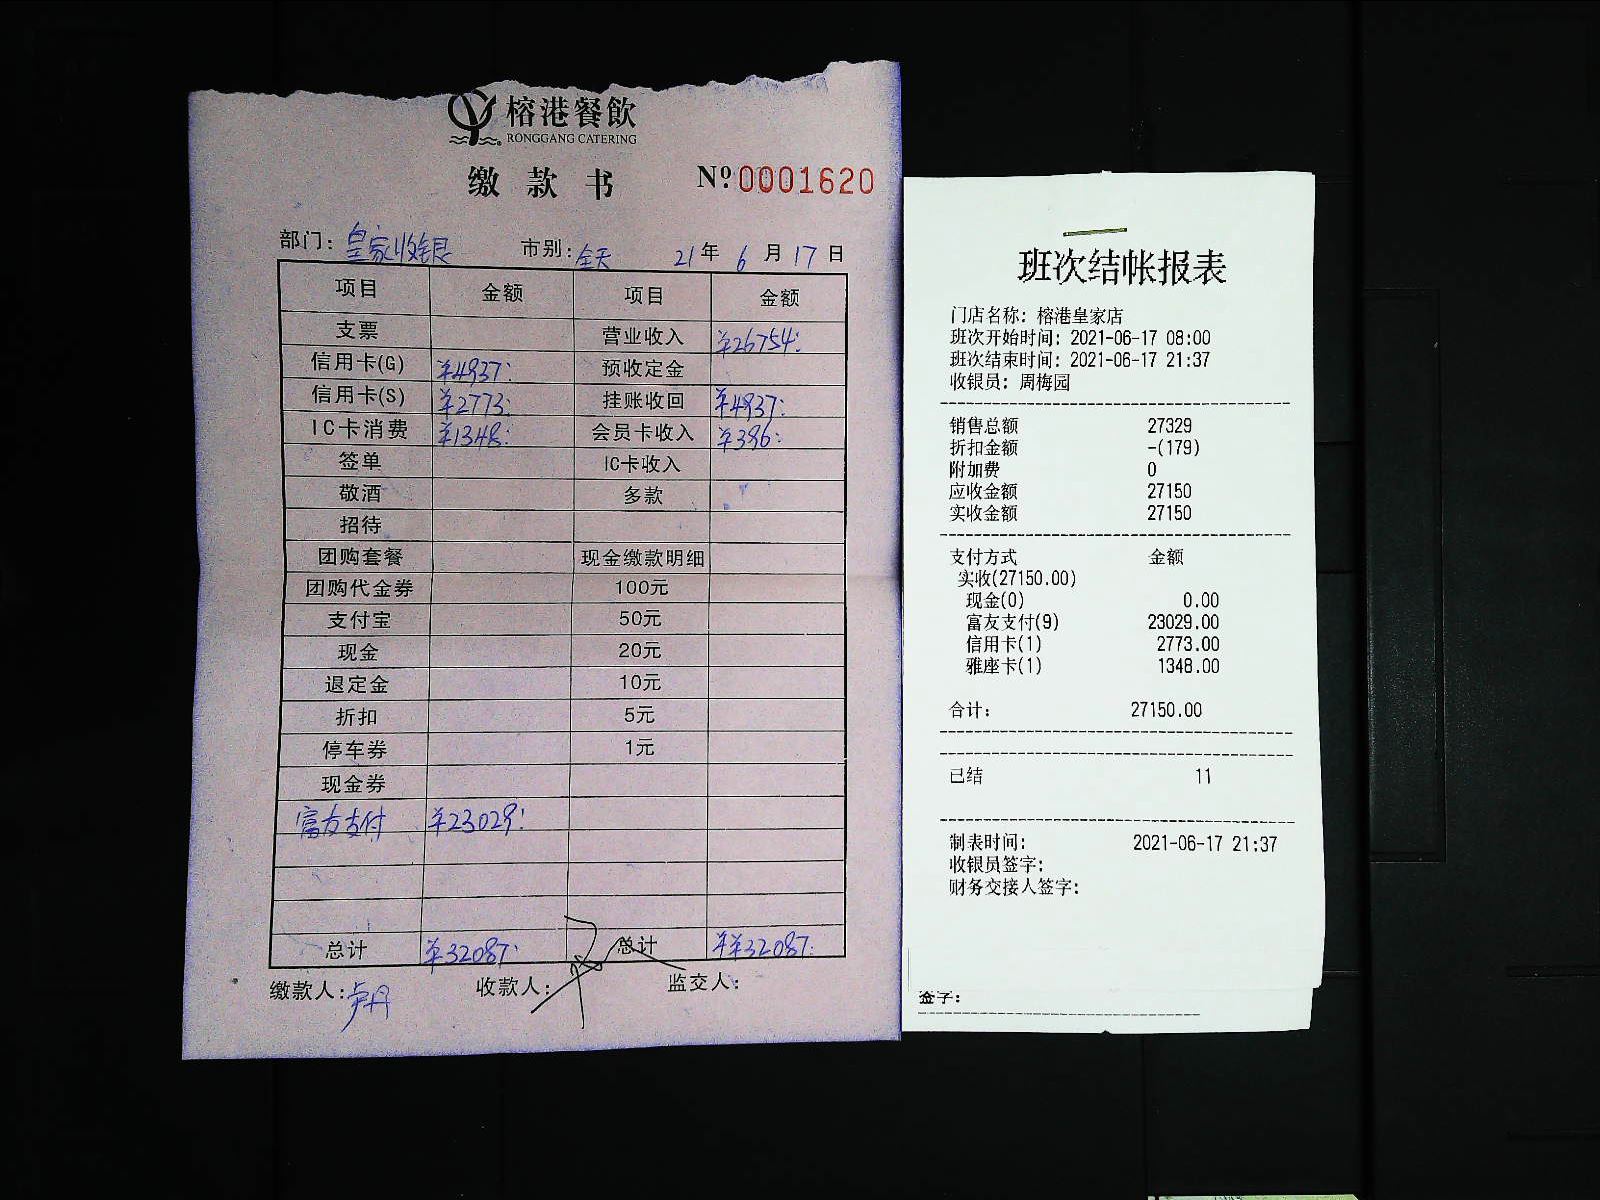 榕港餐飲
RONGGANG CATERING
缴款书 Nº 0001620
部门: 皇家收银 市别: 全天 21年 6月 17日
项目 金额 项目 金额
支票 营业收入 ¥26754:
信用卡(G) ¥4937: 预收定金
信用卡(S) ¥2773: 挂账收回 ¥4937:
IC卡消费 ¥1348: 会员卡收入 ¥396:
签单 IC卡收入
敬酒 多款
招待
团购套餐 现金缴款明细
团购代金券 100元
支付宝 50元
现金 20元
退定金 10元
折扣 5元
停车券 1元
现金券
富友支付 ¥23029:
总计 ¥32087: 总计 ¥¥32087:
缴款人: 卢丹 收款人: 监交人:
班次结帐报表
门店名称: 榕港皇家店
班次开始时间: 2021-06-17 08:00
班次结束时间: 2021-06-17 21:37
收银员: 周梅园
销售总额 27329
折扣金额 -(179)
附加费 0
应收金额 27150
实收金额 27150
支付方式 金额
实收(27150.00)
现金(0) 0.00
富友支付(9) 23029.00
信用卡(1) 2773.00
雅座卡(1) 1348.00
合计: 27150.00
已结 11
制表时间: 2021-06-17 21:37
收银员签字:
财务交接人签字:
签字: